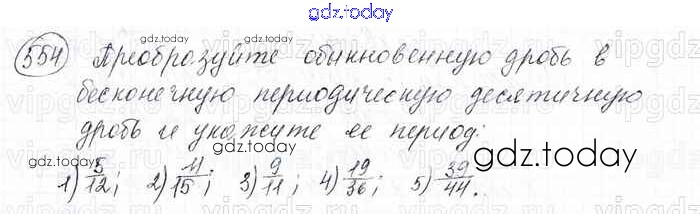 gdz.today
554) Преобразуйте обыкновенную дробь в
бесконечную периодическую десятичную
дробь и укажите её период:
1) 5/12; 2) 11/15; 3) 9/11; 4) 19/36; 5) 39/44.
gdz.today
gdz.today
gdz.today
gdz.today
gdz.today